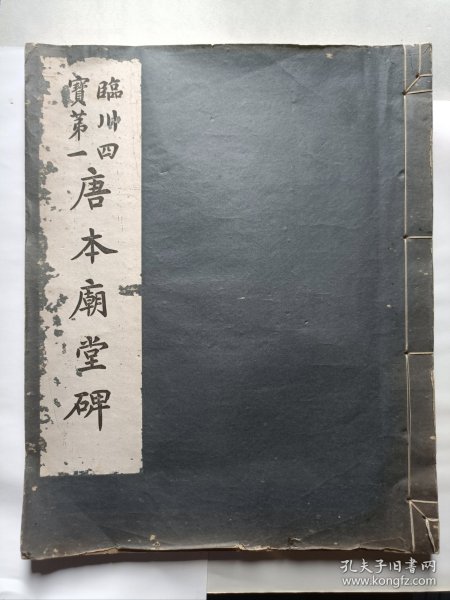 臨川四
寶第一
唐本廟堂碑
孔夫子旧书网
www.kongfz.com